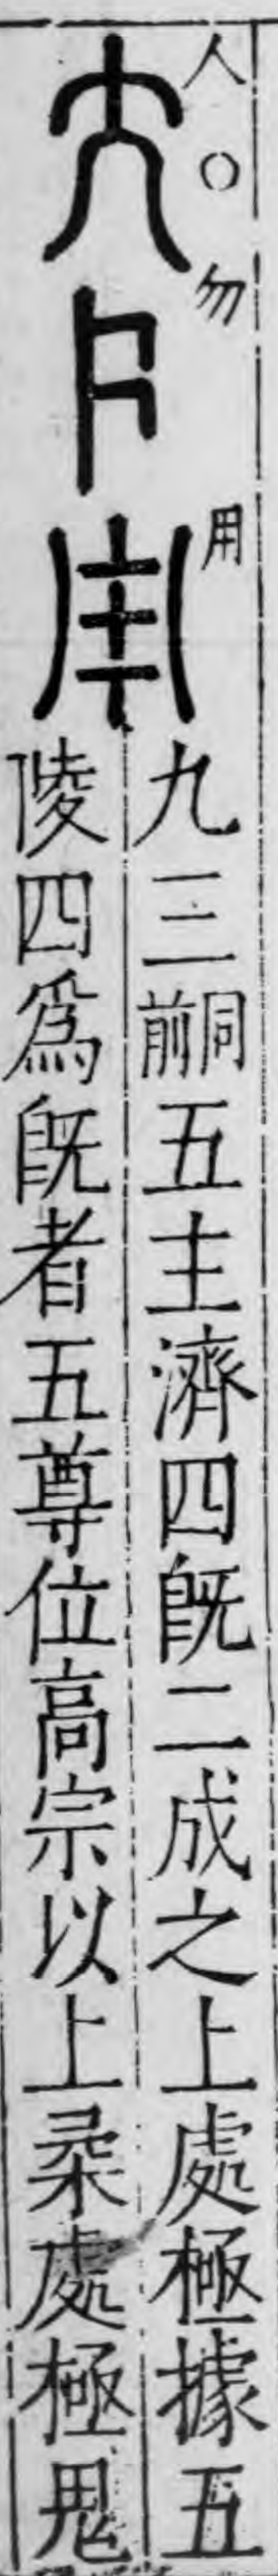 人○勿用
九三前同五主濟四旣二成之上處極據五
陵四爲旣者五尊位高宗以上柔處極鬼